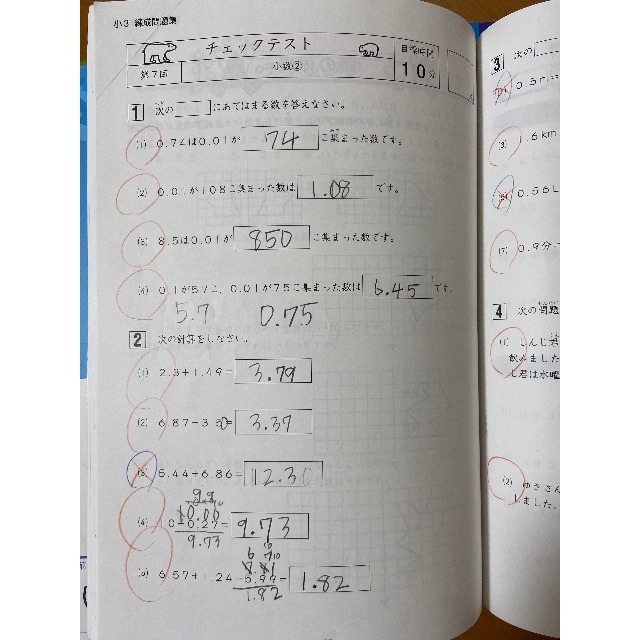 小3 練成問題集
チェックテスト
目標時間
第7回
小数②
10分
1 次の□にあてはまる数を答えなさい。
(1) 0.74は0.01が 74 こ集まった数です。
(2) 0.01が108こ集まった数は 1.08 です。
(3) 8.5は0.01が 850 こ集まった数です。
(4) 0.1が57こ、0.01が75こ集まった数は 6.45 です。
5.7 0.75
2 次の計算をしなさい。
(1) 2.3+1.49= 3.79
(2) 6.87-3.5= 3.37
(3) 5.44+6.86= 12.30
(4) 10-0.27= 9.73
10.00
9.73
(5) 6.57+1.24 = 1.82
1.82
3 次の
0.5m=
(3) 1.6km
0.56L
(7) 0.9分
4 次の問題
(1) しんじ君
飲みました
じ君は水曜
(2) ゆきさん
しました。